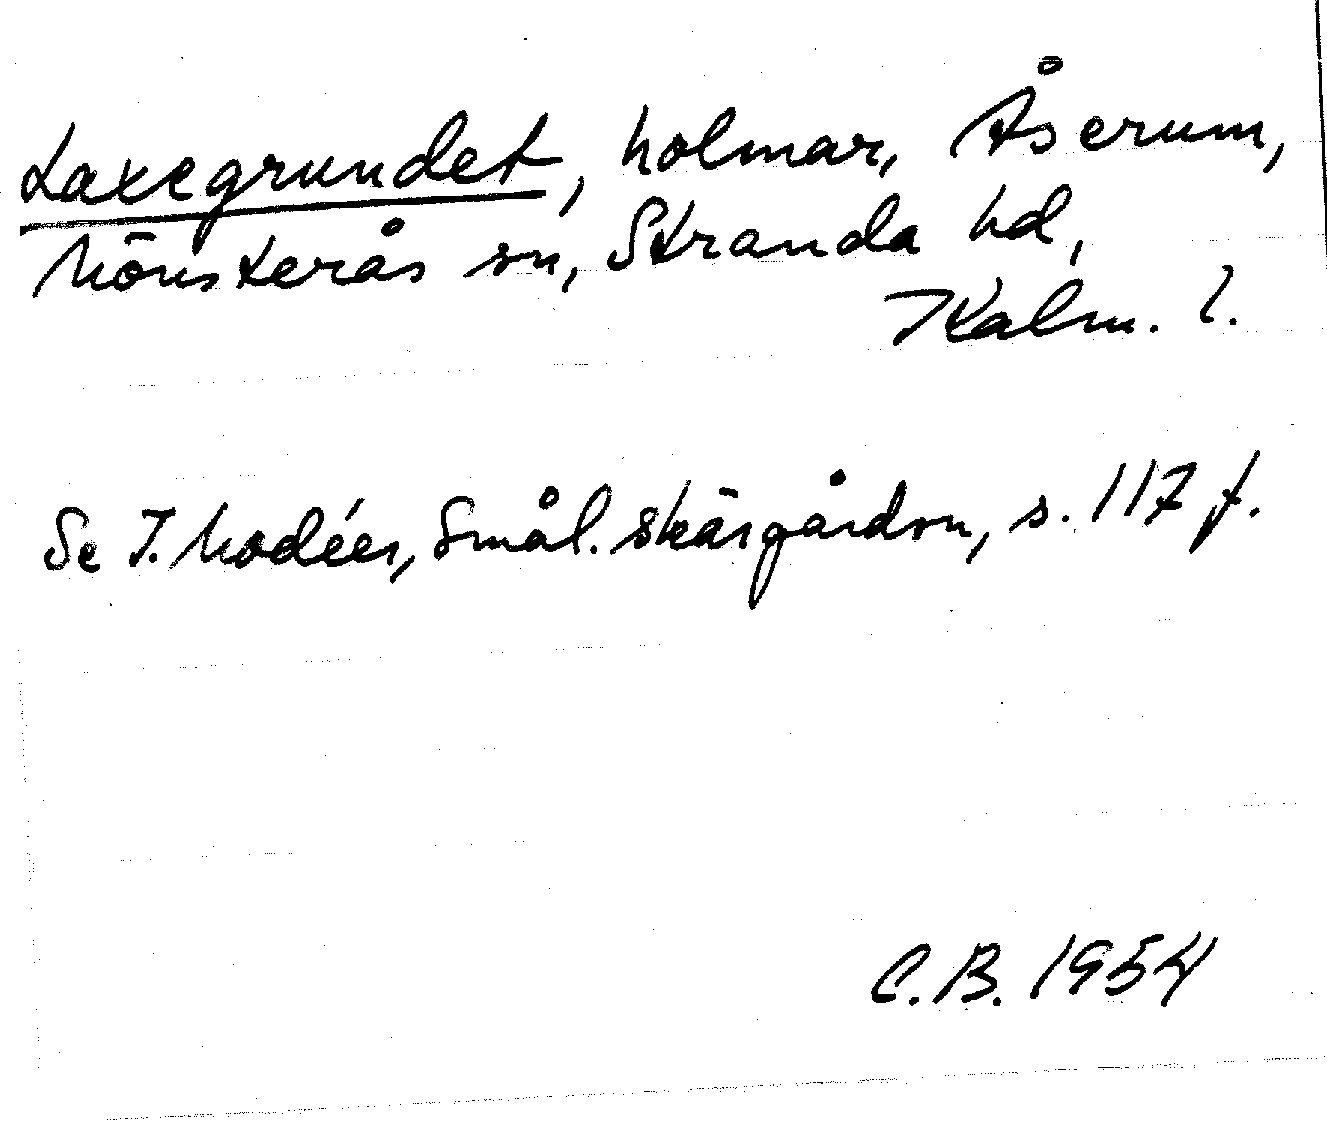 Laxegrundet, holmar, Åserum,
Mönsterås sn, Stranda hd,
Kalm. l.
Se I. Modéer, Smål. skärgårdsn, s. 117 f.
C.B. 1954